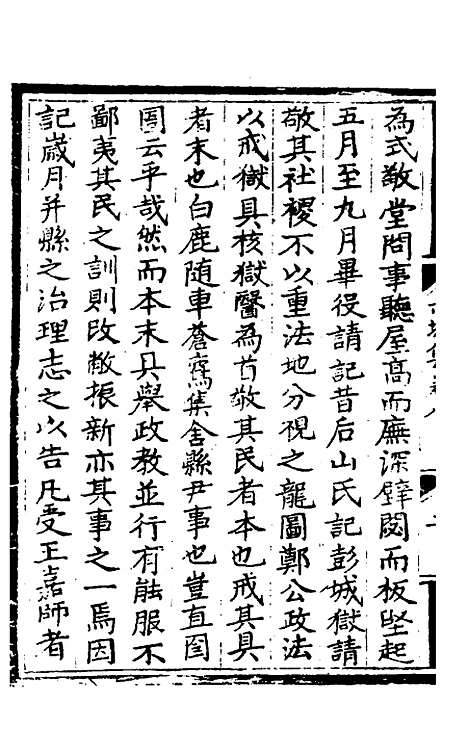 為式敬堂閤事聽屋高而廡深壁閟而板堅起
五月至九月畢役請記昔后山氏記彭城獄請
敬其社稷不以重法地分視之龍圖鄭公政法
以戒獄具核獄醫為首敬其民者本也戒其具
者末也白鹿随車蒼鳶集舍縣尹事也豈直圄
圄云乎哉然而本末具舉政教並行有能服不
鄙夷其民之訓則改敝振新亦其事之一焉因
記嵗月并縣之治理志之以告凡受王嘉師者